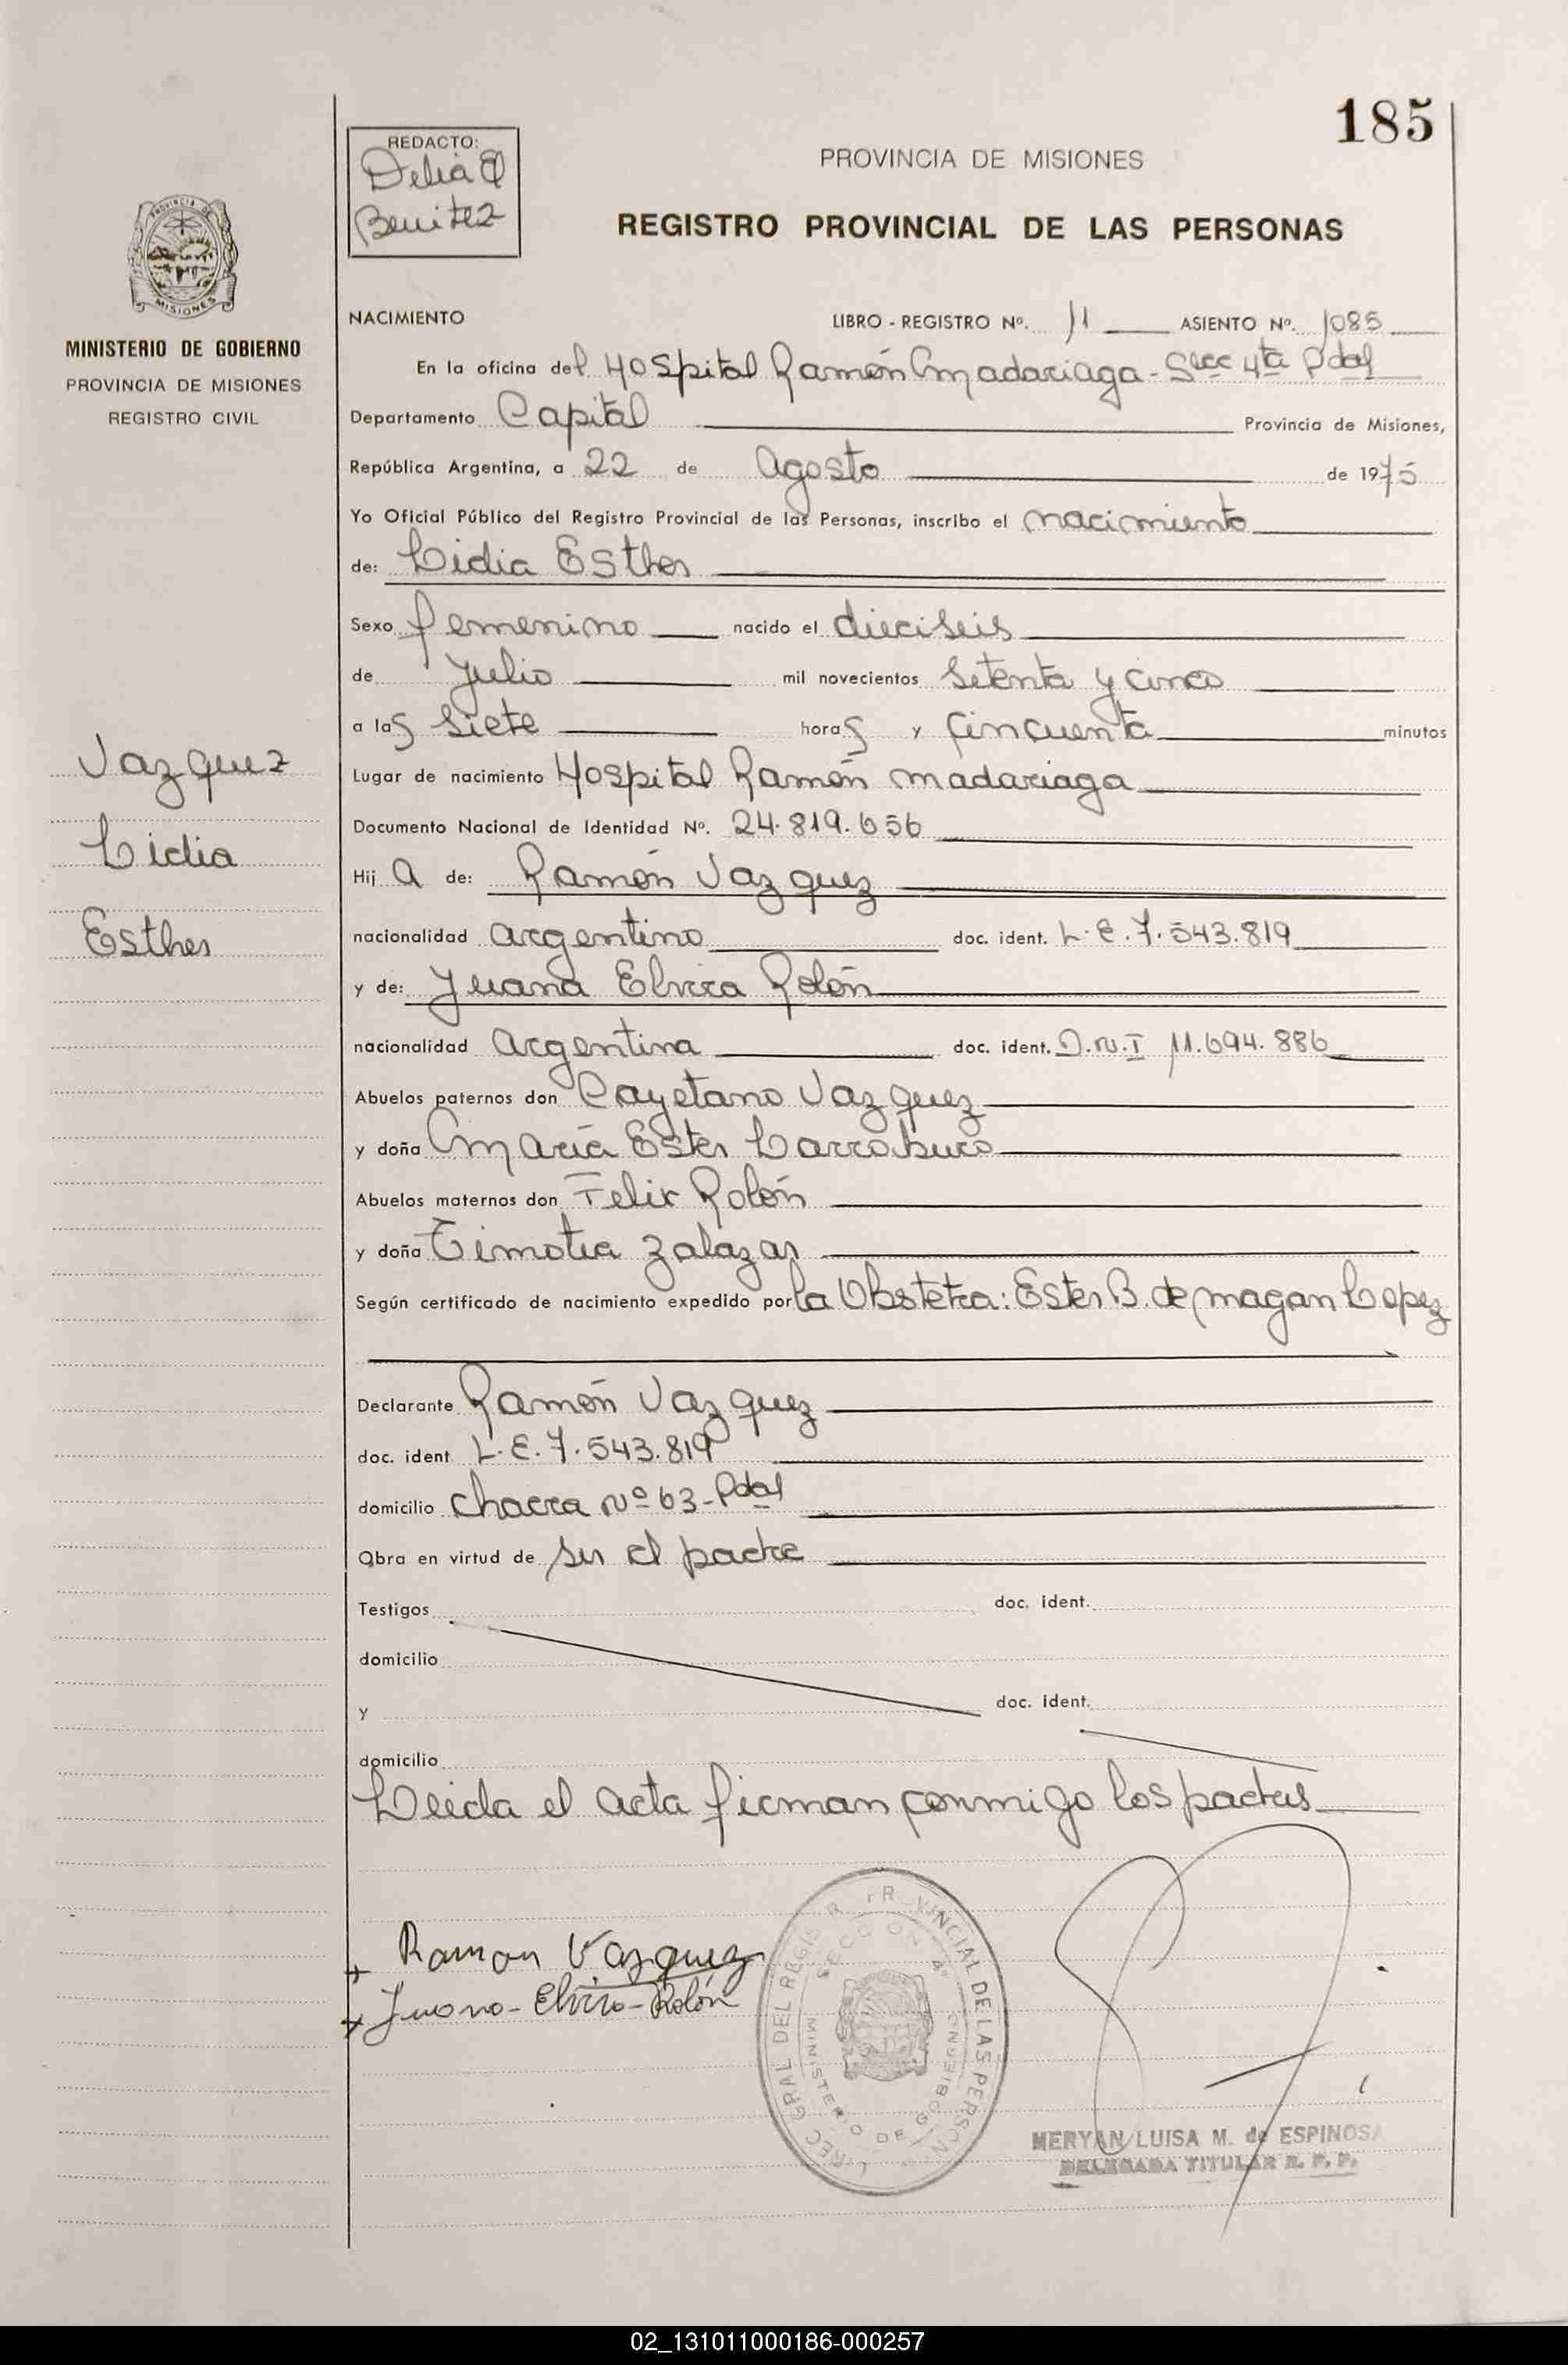 185
REDACTO:
Delia E
Benitez
PROVINCIA DE MISIONES
REGISTRO PROVINCIAL DE LAS PERSONAS
PROVINCIA DE
MISIONES
MINISTERIO DE GOBIERNO
PROVINCIA DE MISIONES
REGISTRO CIVIL
NACIMIENTO LIBRO - REGISTRO Nº. 11 ASIENTO Nº. 1085
En la oficina del Hospital Ramón Madariaga - Secc 4ta Pdas
Departamento Capital Provincia de Misiones,
República Argentina, a 22 de Agosto de 1975
Yo Oficial Público del Registro Provincial de las Personas, inscribo el nacimiento
de: Lidia Esther
Sexo femenino nacido el dieciseis
de Julio mil novecientos setenta y cinco
a las siete horas y cincuenta minutos
Vazquez
Lidia
Esther
Lugar de nacimiento Hospital Ramón Madariaga
Documento Nacional de Identidad Nº. 24.819.656
Hij a de: Ramón Vazquez
nacionalidad argentino doc. ident. L.E. 7.543.819
y de: Juana Elvira Rolón
nacionalidad argentina doc. ident. D.N.I 11.694.886
Abuelos paternos don Cayetano Vazquez
y doña María Ester Larraburo
Abuelos maternos don Felix Rolón
y doña Timotea Zalazar
Según certificado de nacimiento expedido por la Obstetra: Ester B. de Magan Lopez
Declarante Ramón Vazquez
doc. ident L.E. 7.543.819
domicilio Chacra Nº 63 - Pdas
Obra en virtud de ser el padre
Testigos doc. ident.
domicilio
y doc. ident.
domicilio
Leida el acta firman conmigo los padres
Ramon Vazquez
Juana - Elvira - Rolón
DIREC GRAL DEL REGISTR PROVINCIAL DE LAS PERSONAS
SECCION 4ª
MINISTERIO DE GOBIERNO
MERYAN LUISA M. de ESPINOSA
DELEGADA TITULAR R. P. P.
02_131011000186-000257